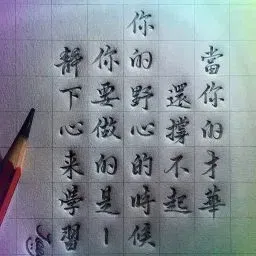 當你的才華
還撐不起
你的野心的時候
你要做的是－
靜下心来學習